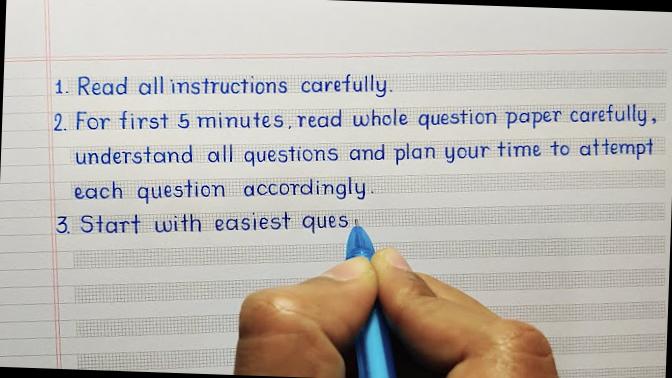 1. Read all instructions carefully.
2. For first 5 minutes, read whole question paper carefully,
understand all questions and plan your time to attempt
each question accordingly.
3. Start with easiest ques